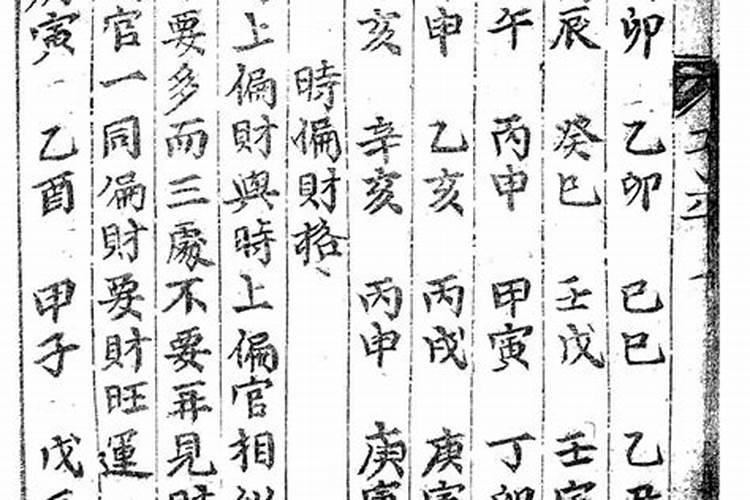 卯 乙卯 己巳 乙
辰 癸巳 壬戌 壬
午 丙申 甲寅 丁卯
申 乙亥 丙戌 庚
亥 辛亥 丙申 庚
時偏財格
上偏財與時上偏官相
要多而三處不要再見
官一同偏財要財旺運
寅 乙酉 甲子 戊